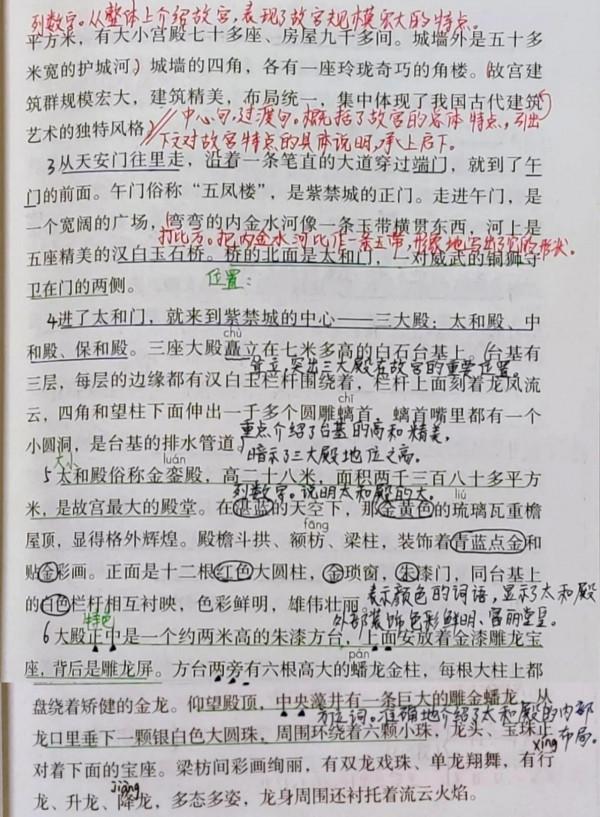 列数字。从整体上介绍故宫,表现了故宫规模宏大的特点。
平方米,有大小宫殿七十多座、房屋九千多间。城墙外是五十多
米宽的护城河。城墙的四角,各有一座玲珑奇巧的角楼。故宫建
筑群规模宏大,建筑精美,布局统一,集中体现了我国古代建筑
艺术的独特风格。
中心句,过渡句。概括了故宫的总体特点,引出
下文对故宫特点的具体说明,承上启下。
3从天安门往里走,沿着一条笔直的大道穿过端门,就到了午
门的前面。午门俗称“五凤楼”,是紫禁城的正门。走进午门,是
一个宽阔的广场,弯弯的内金水河像一条玉带横贯东西,河上是
打比方。把内金水河比作一条玉带,形象地写出了它的形状。
五座精美的汉白玉石桥。桥的北面是太和门,一对威武的铜狮守
卫在门的两侧。
位置:
4进了太和门,就来到紫禁城的中心——三大殿:太和殿、中
chù
和殿、保和殿。三座大殿矗立在七米多高的白石台基上。台基有
直立,突出三大殿在故宫的重要位置。
三层,每层的边缘都有汉白玉栏杆围绕着,栏杆上面刻着龙凤流
chī
云,四角和望柱下面伸出一千多个圆雕螭首,螭首嘴里都有一个
小圆洞,是台基的排水管道。
重点介绍了台基的高和精美,
暗示了三大殿地位之高。
大小
luán
5太和殿俗称金銮殿,高二十八米,面积两千三百八十多平方
列数字。说明太和殿的大。
liú
米,是故宫最大的殿堂。在湛蓝的天空下,那金黄色的琉璃瓦重檐
fāng
屋顶,显得格外辉煌。殿檐斗拱、额枋、梁柱,装饰着青蓝点金和
贴金彩画。正面是十二根红色大圆柱,金琐窗,朱漆门,同台基上
的白色栏杆相互衬映,色彩鲜明,雄伟壮丽。
表示颜色的词语,显示了太和殿
外部装饰色彩鲜明、富丽堂皇。
特色
6大殿正中是一个约两米高的朱漆方台,上面安放着金漆雕龙宝
pán
座,背后是雕龙屏。方台两旁有六根高大的蟠龙金柱,每根大柱上都
盘绕着矫健的金龙。仰望殿顶,中央藻井有一条巨大的雕金蟠龙。从
方位词。准确地介绍了太和殿的内部
布局。
龙口里垂下一颗银白色大圆珠,周围环绕着六颗小珠,龙头、宝珠正
xíng
对着下面的宝座。梁枋间彩画绚丽,有双龙戏珠、单龙翔舞,有行
jiàng
龙、升龙、降龙,多态多姿,龙身周围还衬托着流云火焰。